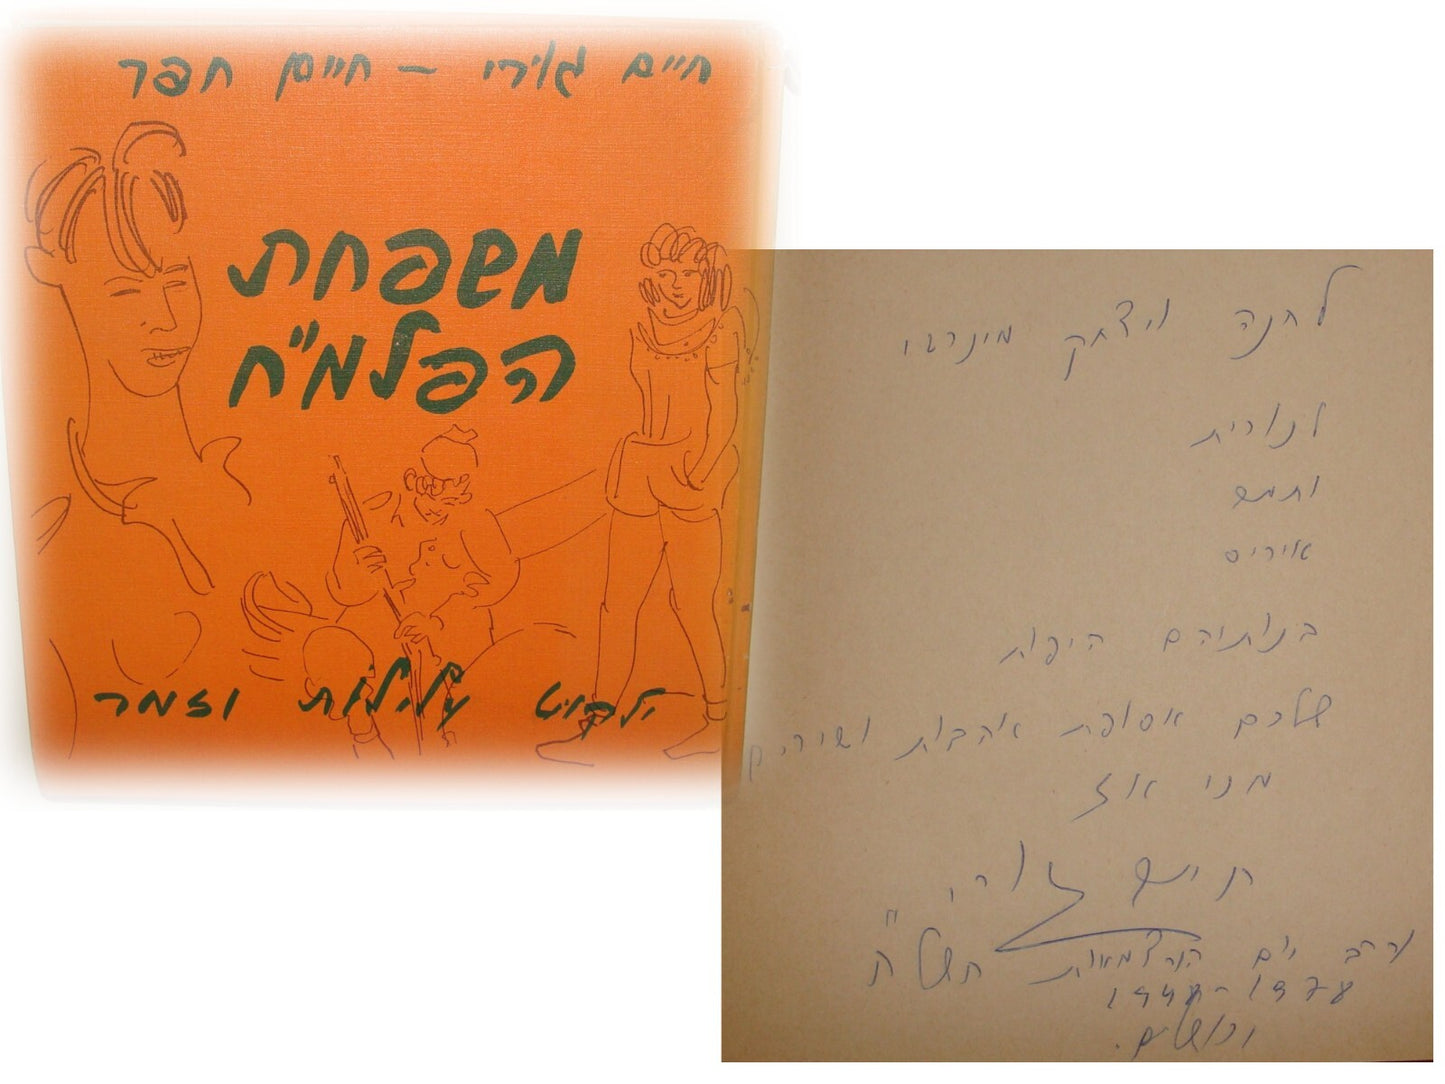 חיים גורי – חיים חפר
משפחת
הפלמ"ח
ילקוט עלילות וזמר
לחנה ויצחק
לנורית
ותמר
איריס
בנותיהם היפות
שלכם אסופת אהבות ושירים
מני אז
חיים גורי
ערב יום העצמאות תשל"ח
1948-1978
ירושלים.